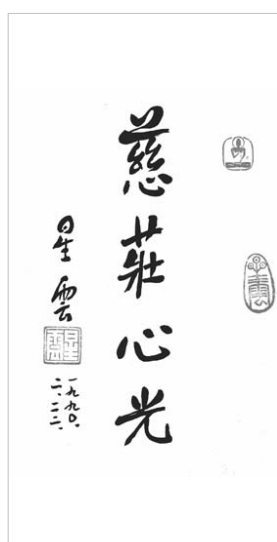 慈莊心光
星雲
一九九〇.
二.二三.